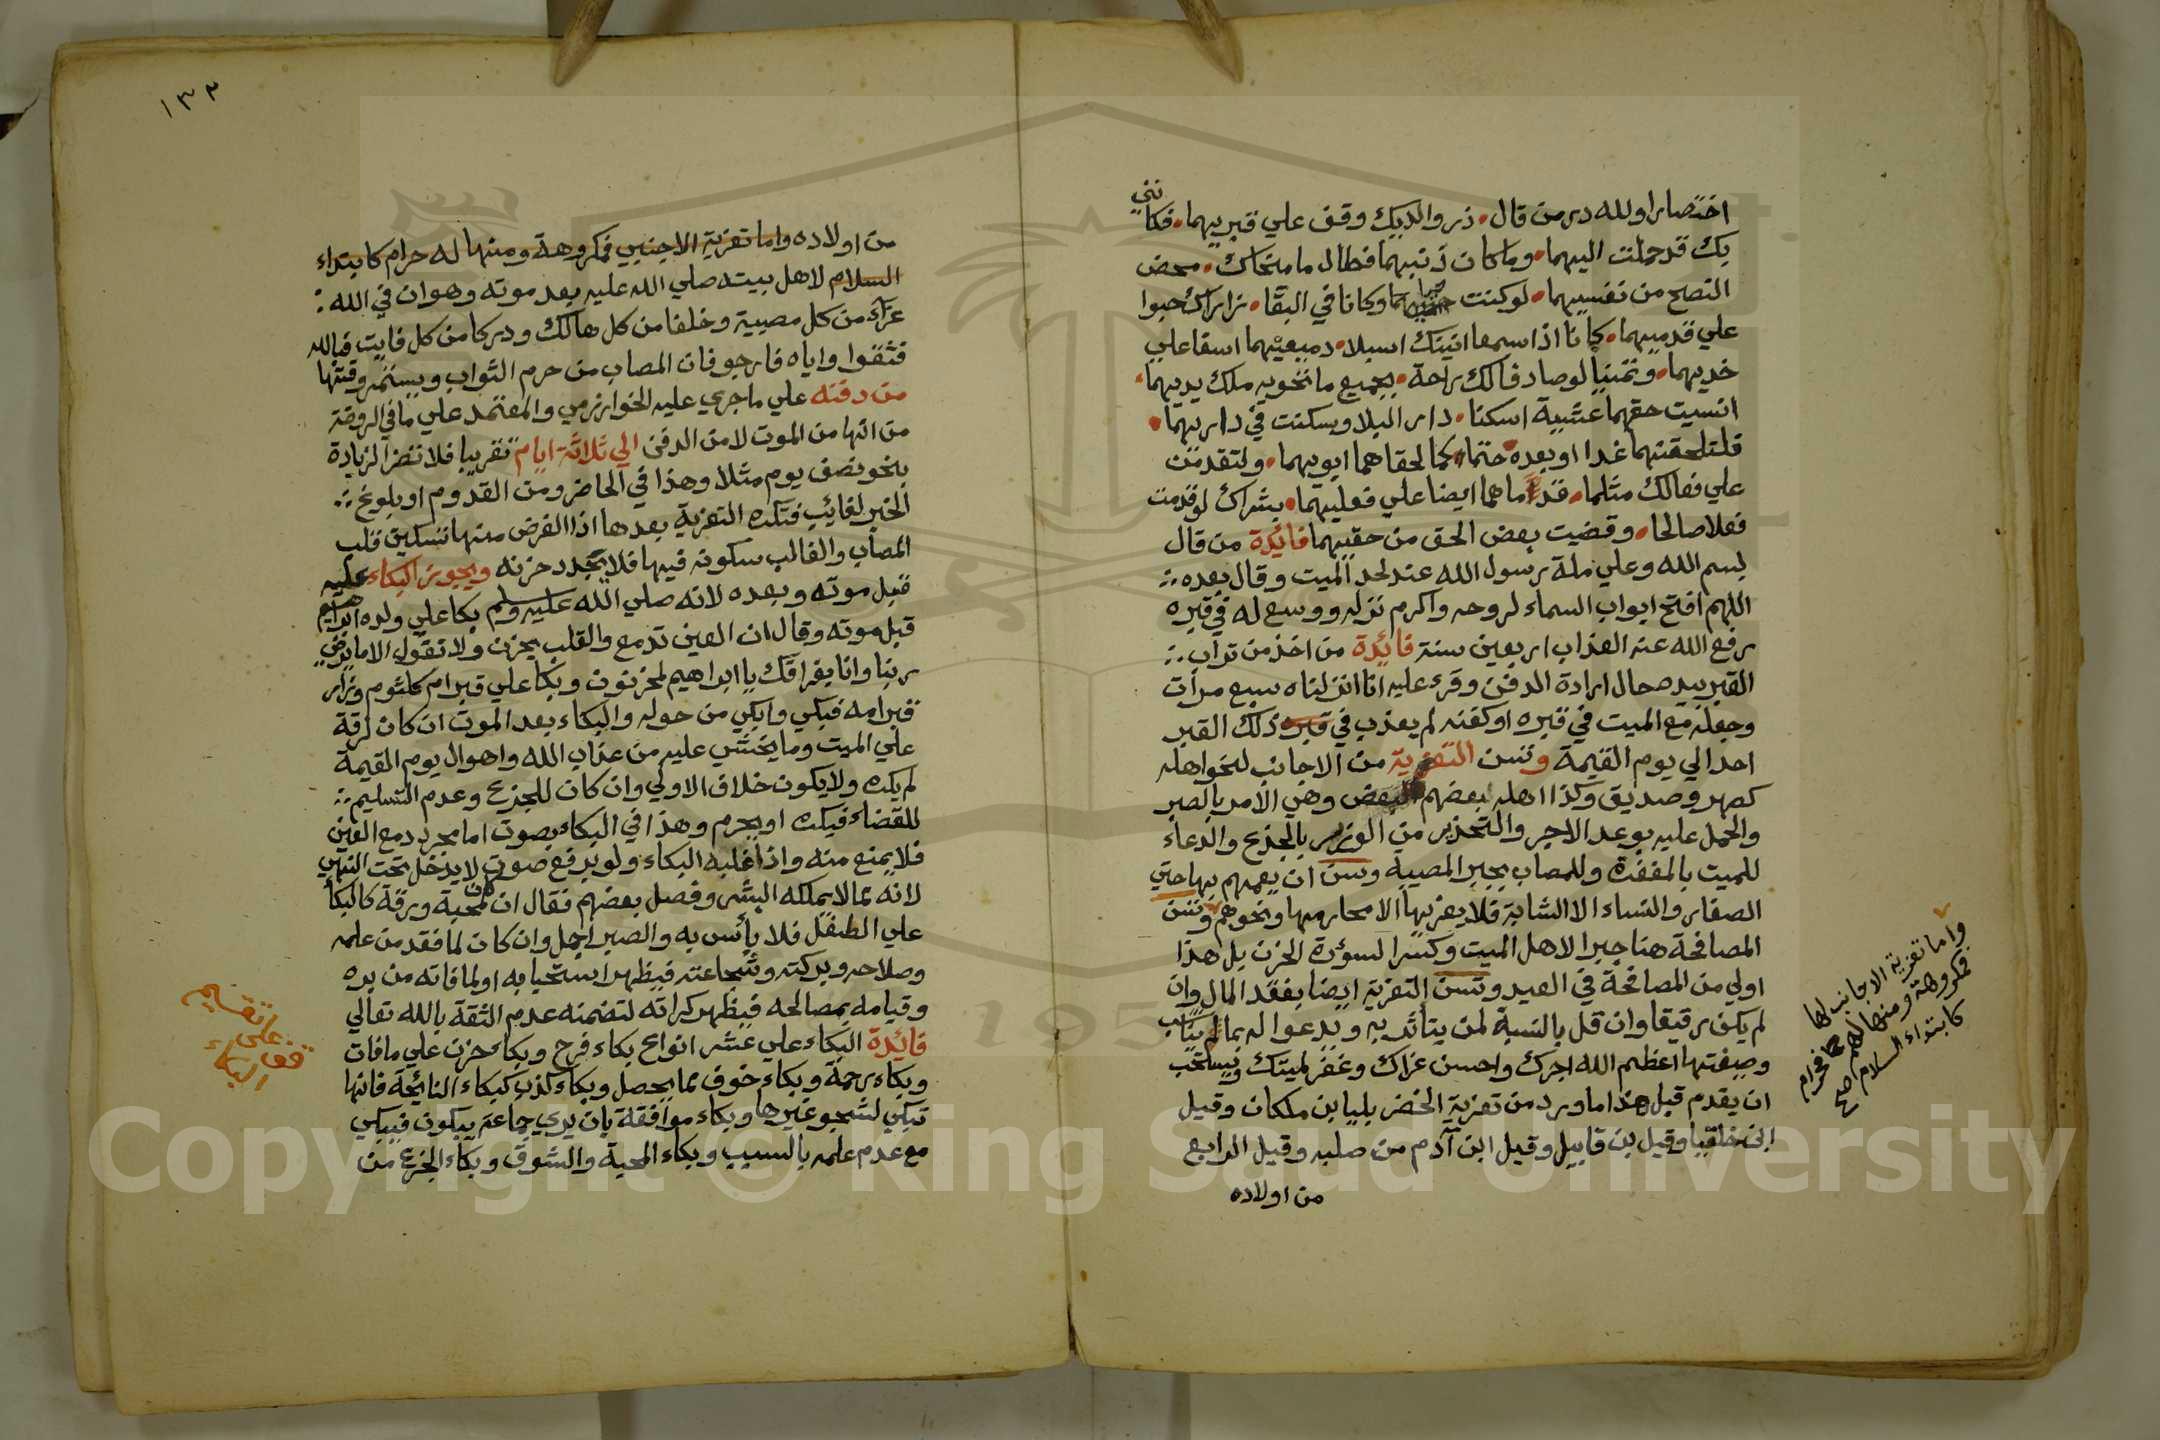 اختصارا ولله در من قال • زر والديك وقف علي قبريهما • فكأنني
بك قد حملت اليهما • وما كان ذنبهما فطال ما منحاك • محض
النصح من نفسيهما • لو كنت وكانا في البقا • زاراك حبوا
علي قدميهما • كانا اذا سمعا انينك اسبلا • دمعيهما اسفا علي
خديهما • وتمنيا لو صادفا لك راحة • بجميع ما تحويه ملك يديهما •
انسيت حقهما عشية اسكنا • دار البلا وسكنت في داريهما •
فلتلحقنهما غدا او بعده حتما كما لحقا هما ابويهما • ولتقدمن
علي فعالك مثلما • قدما هما ايضا علي فعليهما • بشراك لو قدمت
فعلا صالحا • وقضيت بعض الحق من حقيهما فائدة من قال
بسم الله وعلي ملة رسول الله عند لحد الميت وقال بعده
اللهم افتح ابواب السماء لروحه واكرم نزله ووسع له في قبره
رفع الله عنه العذاب اربعين سنة فائدة من اخذ من تراب
القبر بيده حال ارادة الدفن وقرء عليه انا انزلناه سبع مرات
وجعله مع الميت في قبره او كفنه لم يعذب في قبره ذلك القبر
احد الي يوم القيمة وتسن التعزية من الاجانب لنحو اهله
كصهر وصديق وكذا اهله بعضهم البعض وهي الامر بالصبر
والحمل عليه بوعد الاجر والتحذير من الوزر بالجزع والدعاء
للميت بالمغفرة وللمصاب بجبر المصيبة وسن ان يعمهم بها حتي
الصغار والنساء الا الشابة فلا يعزيها الا محارمها ونحوهم وتسن
المصافحة هنا جبرا لاهل الميت وكسرا لسورة الحزن بل هذا
اولي من المصافحة في العيد وتسن التعزية ايضا بفقد المال وان
لم يكن رقيقا وان قل بالنسبة لمن يتاثر به ويدعوا له بما يناسب
وصيغتها اعظم الله اجرك واحسن عزاك وغفر لميتك ويستحب
ان يقدم قبل هذا ما ورد من تعزية الخضر بليا بن ملكان وقيل
ابن خلقيا وقيل بن قابيل وقيل ابن آدم من صلبه وقيل الرابع
من اولاده
واما تعزية الاجانب لها
فمكروهة ومنها لهم فحرام
كابتداء السلام اصح
١٣٣
من اولاده واما تعزية الاجنبي فمكروهة ومنها له حرام كابتداء
السلام لاهل بيته صلي الله عليه بعد موته وهو ان في الله
عزاء من كل مصيبة وخلفا من كل هالك ودركا من كل فايت فبالله
فثقوا واياه فارجو فان المصاب من حرم الثواب ويستمر وقتها
من دفنه علي ما جري عليه الخوارزمي والمعتمد علي ما في الروضة
من انها من الموت لا من الدفن الي ثلاثة ايام تقريبا فلا تضر الزيادة
بنحو نصف يوم مثلا وهذا في الحاضر ومن القدوم او بلوغ
الخبر لغائب فتكره التعزية بعدها اذا الغرض منها تسكين قلب
المصاب والغالب سكونه فيها فلا يجدد حزنه ويجوز البكاء عليه
قبل موته وبعده لانه صلي الله عليه وسلم بكا علي ولده ابراهيم
قبل موته وقال ان العين تدمع والقلب يحزن ولا نقول الا ما يرضي
ربنا وانا بفراقك يا ابراهيم لمحزنون وبكا علي قبر ام كلثوم وزار
قبر امه فبكي وابكي من حوله والبكاء بعد الموت ان كان لرقة
علي الميت وما يخشي عليه من عذاب الله واهوال يوم القيمة
لم يكره ولا يكون خلاف الاولي وان كان للجزع وعدم التسليم
للقضاء فيكره او يحرم وهذا في البكاء بصوت اما مجرد دمع العين
فلا يمنع منه واذا غلبه البكاء ولو برفع صوت لا يدخل تحت النهي
لانه مما لا يملكه البشر وفصل بعضهم فقال ان كان لمحبة ورقة كالبكا
علي الطفل فلا بأس به والصبر اجمل وان كان لما فقد من علمه
وصلاحه وبركته وشجاعته فيظهر استحبابه او لما فاته من بره
وقيامه بمصالحه فيظهر كراته لتضمنه عدم الثقة بالله تعالي
فائدة البكاء علي عشر انواع بكاء فرح وبكاء حزن علي مافات
وبكاء رحمة وبكاء خوف مما يحصل وبكاء كذب كبكاء النائحة فانها
تبكي لشجو غيرها وبكاء موافقة بان يري جماعة يبكون فيبكي
مع عدم علمه بالسبب وبكاء المحبة والشوق وبكاء الجزع من
قف على تقسيم
البكاء
Copyright © King Saud University